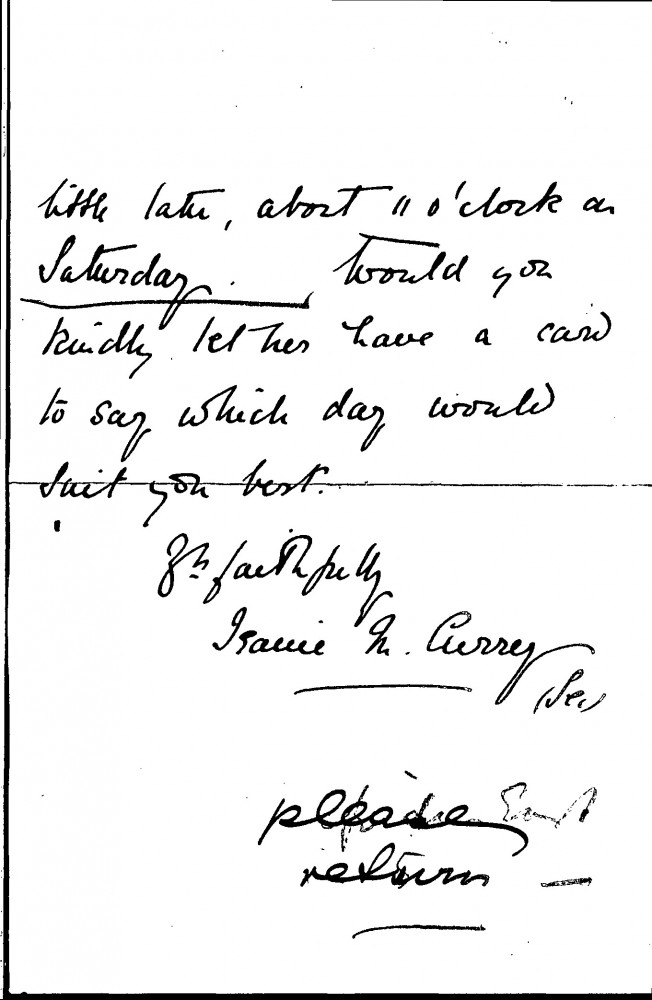 little late, about 11 o'clock on
Saturday. Would you
kindly let her have a card
to say which day would
suit you best.
Yrs faithfully
M. Currey
(Sec)
please
return —